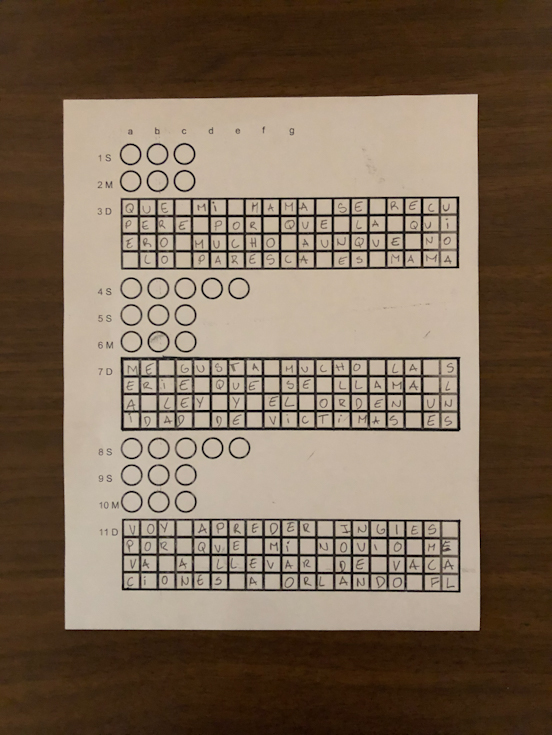 a b c d e f g
1 S
2 M
3 D QUE MI MAMA SE RECU
PERE POR QUE LA QUI
ERO MUCHO AUNQUE NO
LO PARESCA ES MAMA
4 S
5 S
6 M
7 D ME GUSTA MUCHO LA S
ERIE QUE SE LLAMA L
A LEY Y EL ORDEN UN
IDAD DE VICTIMAS ES
8 S
9 S
10 M
11 D VOY APREDER INGLES
POR QUE MI NOVIO ME
VA A LLEVAR DE VACA
CIONES A ORLANDO FL